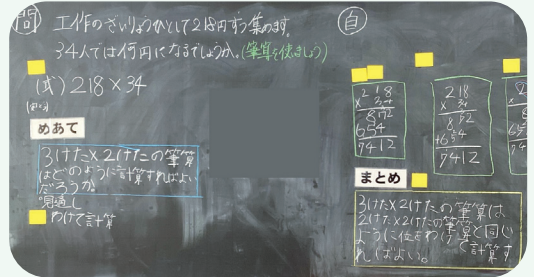 問
工作のざいりょうひとして218円ずつ集めます。
34人では何円になるでしょうか。(筆算を使いましょう)
(式) 218×34
めあて
3けた×2けたの筆算
はどのように計算すればよい
だろうか
見通し
わけて計算
自
218
×34
872
654
7412
218
×34
872
+654
7412
まとめ
3けた×2けたの筆算は
2けた×2けたの筆算と同じ
ように位をわけて計算す
ればよい。